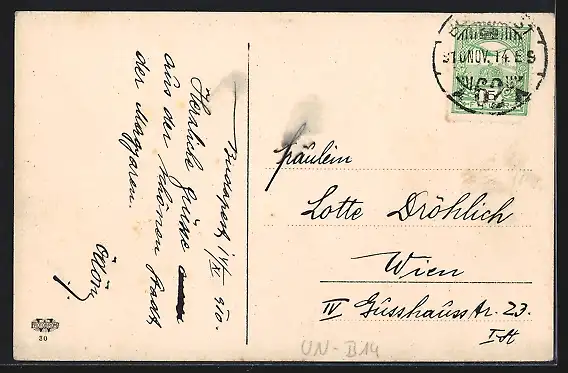 Budapest, 14/XI 910.
Herzliche Grüsse
aus der schönen Stadt
der Magyaren.
Fräulein
Lotte Dröhlich
Wien
IV Gusshausstr. 23.
I. St
910 NOV. 14.
30
UN-B14